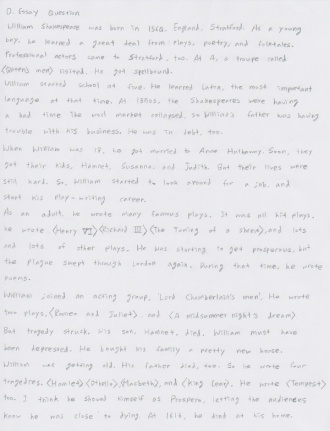 D. Essay Question
William Shakespeare was born in 1564. England. Stratford. As a young
boy, he learned a great deal from plays, poetry, and folktales.
Professional actors came to Stratford, too. At 4, a troupe called
<Queen's men> visited. He got spellbound.
William started school at five. He learned Latin, the most important
language at that time. At 1570s, the Shakespeares were having
a bad time. The wool market collapsed, so William's father was having
trouble with his business. He was in debt, too.
When William was 18, he got married to Anne Hathaway. Soon, they
got their kids, Hamnet, Susanna, and Judith. But their lives were
still hard. So, William started to look around for a job, and
start his play-writing career.
As an adult, he wrote many famous plays. It was all hit plays.
He wrote <Henry VI> <Richard III> <The Taming of a Shrew>, and lots
and lots of other plays. He was starting to get prosperous, but
the plague swept through London again. During that time, he wrote
poems.
William joined an acting group, 'Lord Chamberlain's men'. He wrote
two plays, <Romeo and Juliet>, and <A midsummer night's dream>
But tragedy struck. His son, Hamnet, died. William must have
been depressed. He bought his family a pretty new house.
William was getting old. His father died, too. So he wrote four
tragedies, <Hamlet> <Othello>, <Macbeth>, and <King Lear>. He wrote <Tempest>
too. I think he showed himself as Prospero, letting the audiences
know he was close to dying. At 1616, he died at his home.